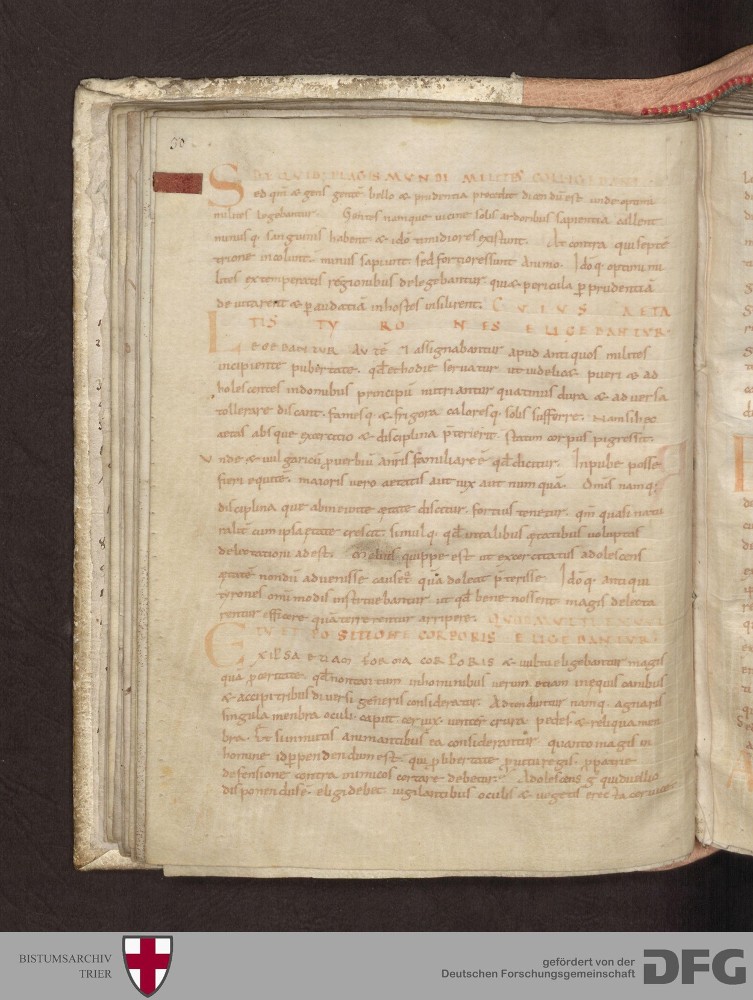 30
DE QUIBUS PLAGIS MVNDI MILITES COLLIGEBANTUR
Sed qm̄ & gens gentē bello & prudentia precedit dicendū est unde optimi
milites legebantur. Gentes namque uicine solis ardoribus sapientia callent
minusq; sanguinis habent & idō timidiores existunt. At contra qui septē
trione incolunt. minus sapiunt. sed fortiores sunt animo. Idōq; optimi mi
lites ex temperatis regionibus delegebantur quia & pericula p̱ prudentiā
deuitarent & p̱ audatiā in hostes insilirent. CVIVS AETA
TIS TYRONES ELIGEBANTVR.
LEGEBANTUR AUTĒ & assignabantur apud antiquos milites
incipiente pubertate. qd̄ & hodie seruatur ut uidelic& pueri & ad
holescentes in domibus principū nutriantur quatinus dura & aduersa
tollerare discant. famesq; & frigora caloresq; solis sufferre. Nam si hec
aetas absque exercitio & disciplina p̄terierit. statim corpus pigrescit.
Vnde & uulgaricū ꝓuerbiū familiare ē qd̄ dicitur. In pube posse
fieri equitē. maioris uero aetatis aut uix aut numquā. Omīs namq;
disciplina que ab ineunte ętate discitur. fortius tenetur. qm̄ quasi natu
ralit̄ cum ipsa ętate crescit. simulq; qd̄ in talibus ętatibus uoluptas
delectationi adest. Melius quippe est ut exercitatus adolescens
ętatē nondū aduenisse causet᷒ quā doleat p̄terisse. Idōq; antiqui
tyrones omīmodis instruebantur ut qd̄ bene nossent magis delecta
rentur efficere quā terrerentur arripere. QUO UULTU UEL
ET POSITIONE CORPORIS ELIGEBANTUR.
EX IPSA ETIAM FORMA CORPORIS & uultu eligebantur magis
qua ꝓceritate. qd̄ non tantum in hominibus uerum etiam in equis canibus
& accipitribus diuersi generis consideratur. Adtenduntur namq; a gnaris
singula menbra oculi. caput. ceruix. uenter. crura. pedes. & reliqua men
bra. Et si in mutis animantibus ea considerantur quanto magis in
homine id p̱pendendum est. qui ꝓ libertate ꝓ uita regis. ꝓ patrie
defensione contra inimicos certare debet. Adolescens g̊ qui duello
disponendus ē. eligi debet uigilantibus oculis & uegetis erecta ceruice
BISTUMSARCHIV
TRIER
gefördert von der
Deutschen Forschungsgemeinschaft
DFG